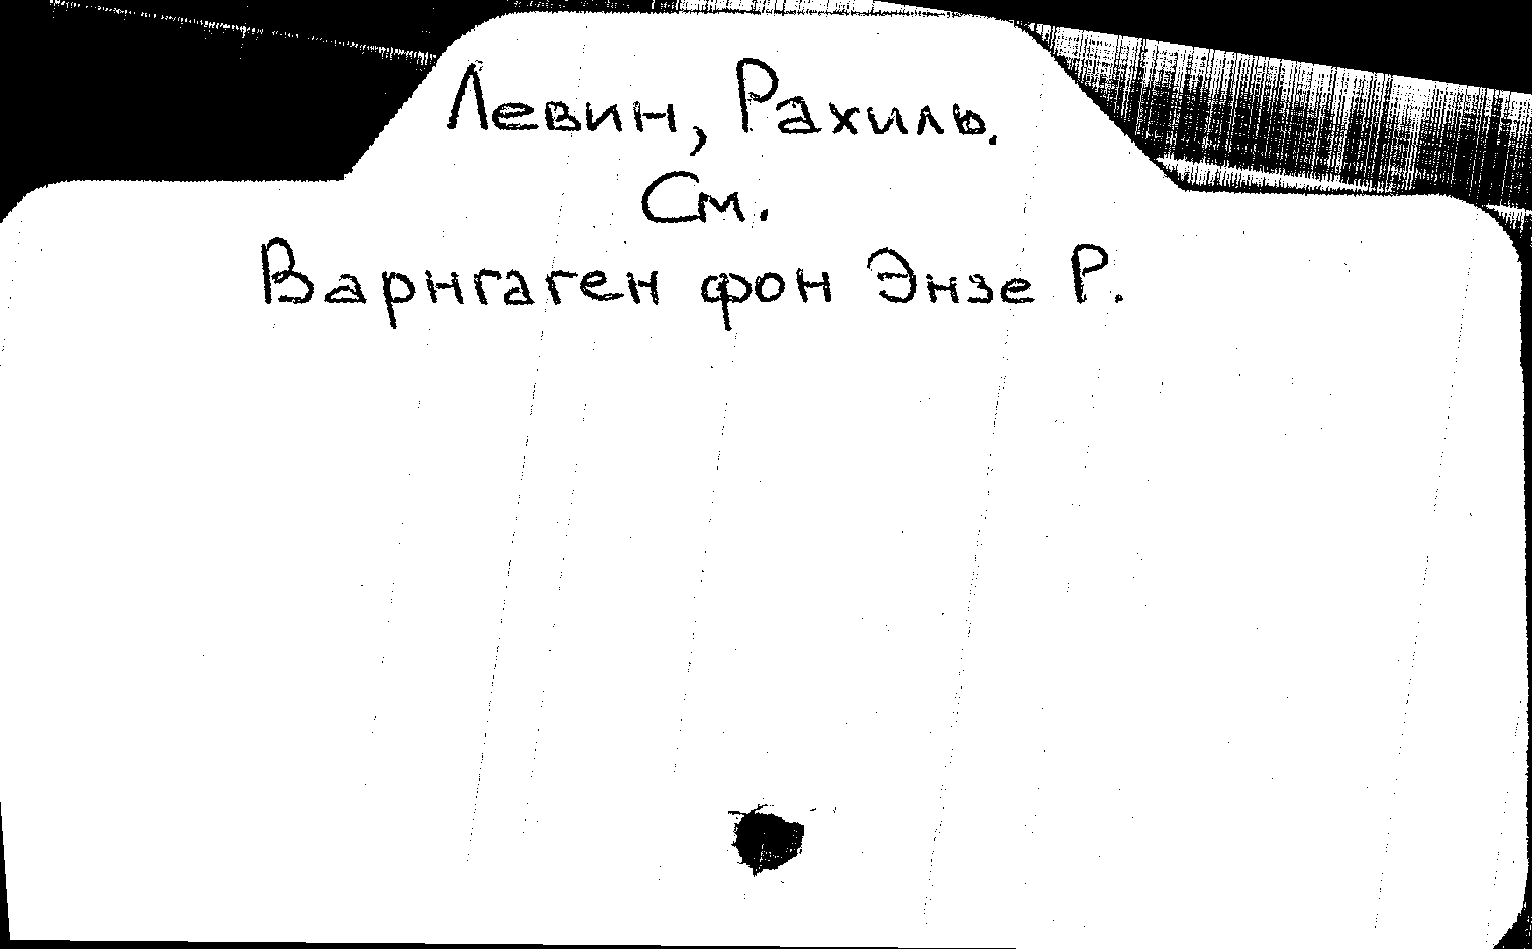 Левин, Рахиль.
См.
Варнгаген фон Энзе Р.